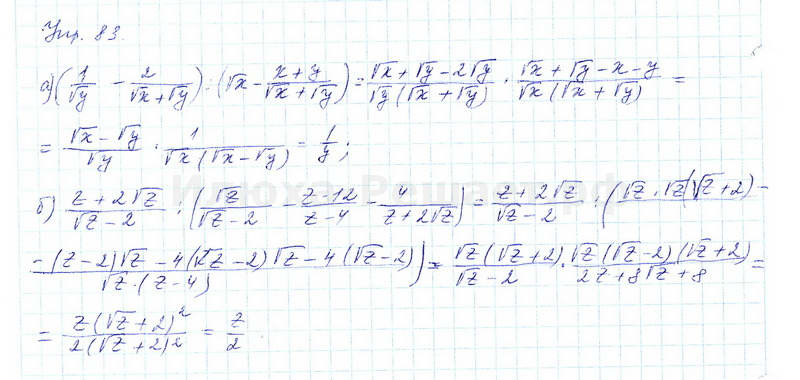 Упр. 83.
а) (1/√y − 2/(√x+√y)) : (√x − (x+y)/(√x+√y)) = (√x+√y−2√y)/(√y(√x+√y)) · (√x+√y−x−y)/(√x(√x+√y)) =
= (√x−√y)/√y · 1/(√x(√x−√y)) = 1/y;
б) (z+2√z)/(√z−2) : (√z/(√z−2) − (z−12)/(z−4) − 4/(z+2√z)) = (z+2√z)/(√z−2) : (√z·√z(√z+2)−
−(z−2)√z−4(√z−2)√z−4(√z−2))/(√z·(z−4)) = √z(√z+2)/(√z−2) · √z(√z−2)(√z+2)/(2z+8√z+8) =
= z(√z+2)²/(2(√z+2)²) = z/2